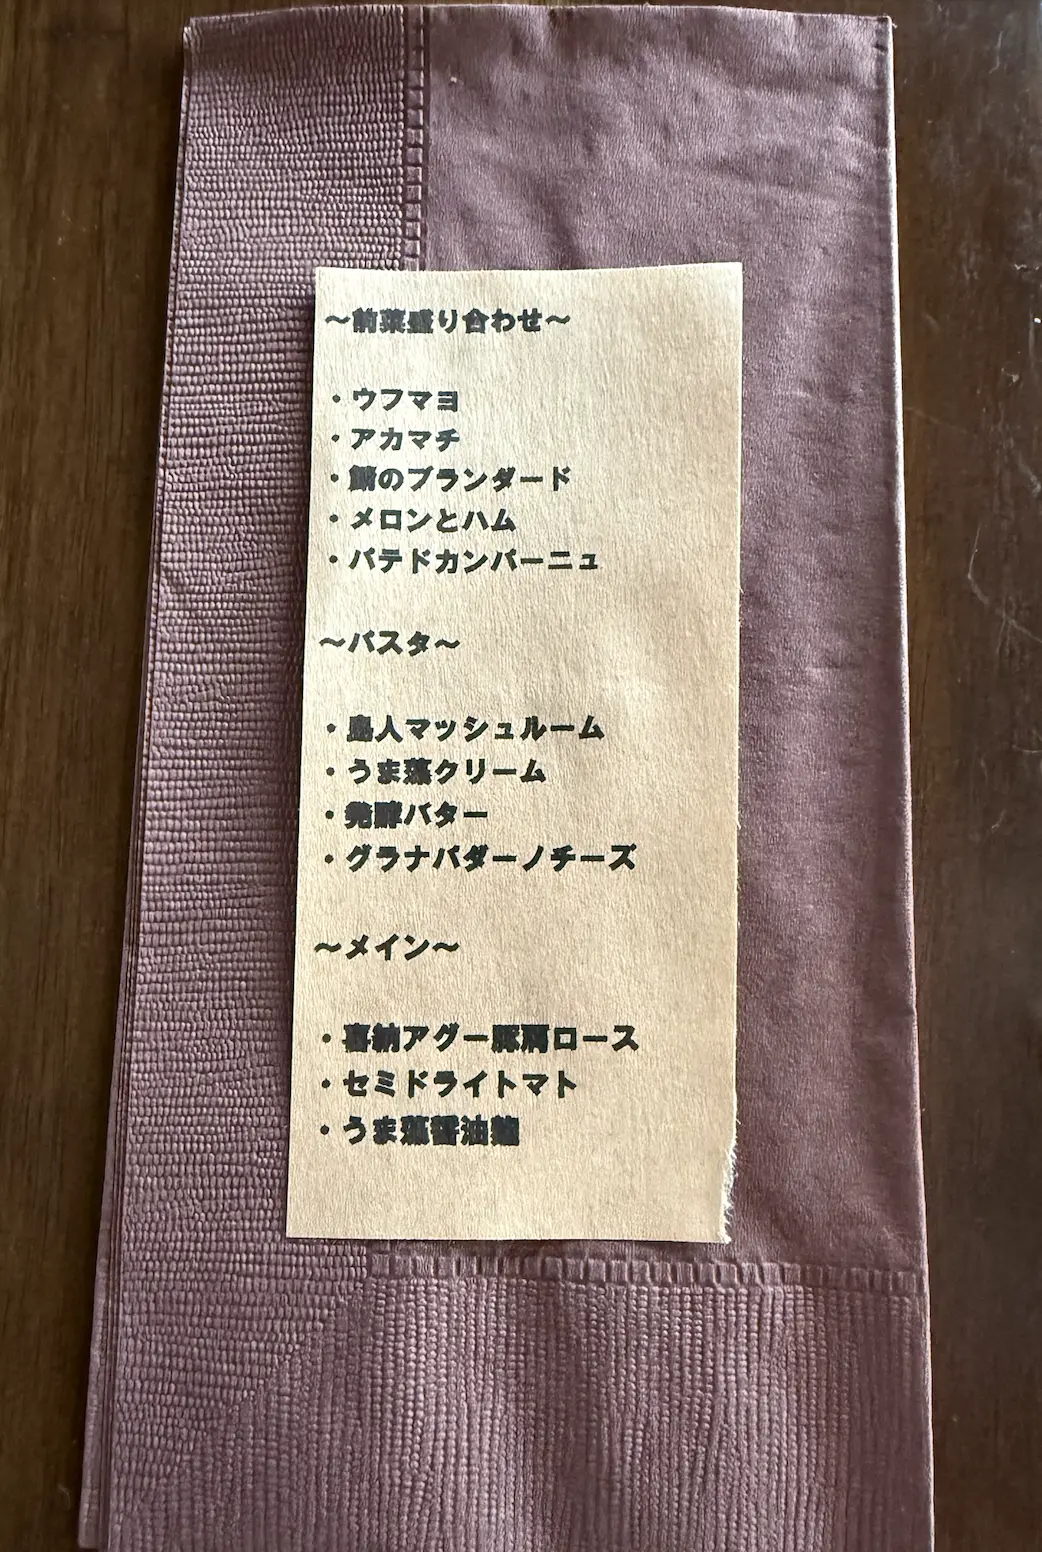 ～前菜盛り合わせ～
・ウフマヨ
・アカマチ
・鯖のブランダード
・メロンとハム
・パテドカンパーニュ
～パスタ～
・島人マッシュルーム
・うま藻クリーム
・発酵バター
・グラナパダーノチーズ
～メイン～
・喜納アグー豚肩ロース
・セミドライトマト
・うま藻醤油麹